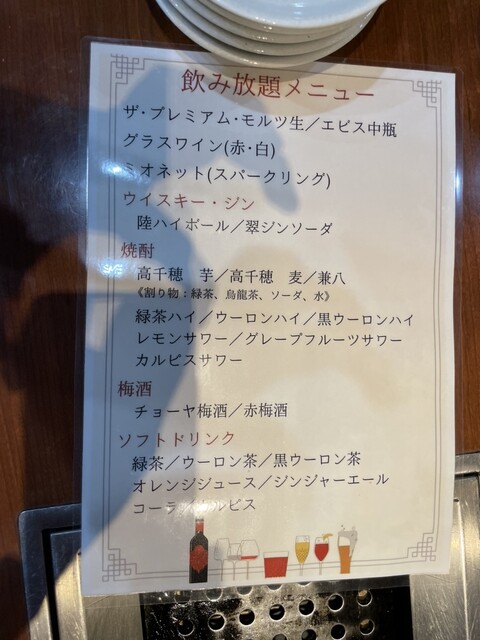 飲み放題メニュー
ザ・プレミアム・モルツ生／エビス中瓶
グラスワイン(赤・白)
ミオネット(スパークリング)
ウイスキー・ジン
陸ハイボール／翠ジンソーダ
焼酎
高千穂　芋／高千穂　麦／兼八
《割り物：緑茶、烏龍茶、ソーダ、水》
緑茶ハイ／ウーロンハイ／黒ウーロンハイ
レモンサワー／グレープフルーツサワー
カルピスサワー
梅酒
チョーヤ梅酒／赤梅酒
ソフトドリンク
緑茶／ウーロン茶／黒ウーロン茶
オレンジジュース／ジンジャーエール
コーラ／カルピス